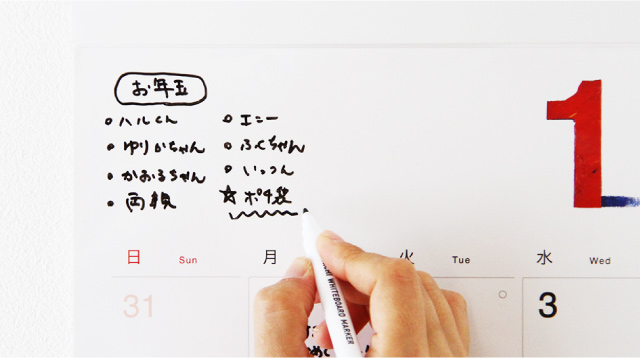 お年玉
ハルくん
ゆりかちゃん
かおるちゃん
両親
エニー
ふくちゃん
いっつん
☆ポチ袋
1
日 Sun 月 火 Tue 水 Wed
31 3
WHITEBOARD MARKER